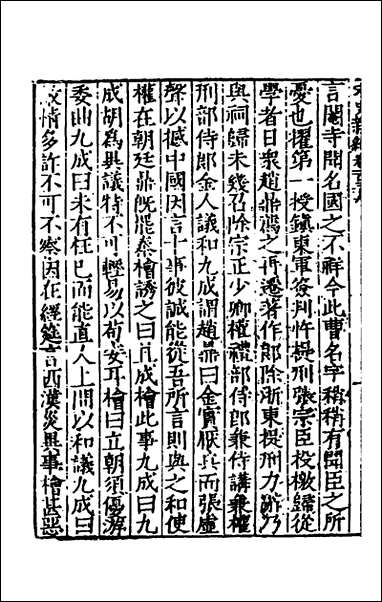 言閹寺聞名國之不祥今此曹名字稍稍有聞臣之所
憂也擢第一授鎮東軍簽判忤提刑張宗臣投檄歸從
學者日衆趙鼎薦之再遷著作郎除浙東提刑力辭乃
與祠歸未幾召除宗正少卿權禮部侍郎兼侍講兼權
刑部侍郎金人議和九成謂趙鼎曰金實厭兵而張虛
聲以撼中國因言十事彼誠能從吾所言則與之和使
權在朝廷鼎既罷秦檜誘之曰且成檜此事九成曰九
成胡爲異議特不可輕易以苟安耳檜曰立朝須優游
委曲九成曰未有枉己而能直人上問以和議九成曰
敵情多詐不可不察因在經筵言西漢災異事檜甚惡